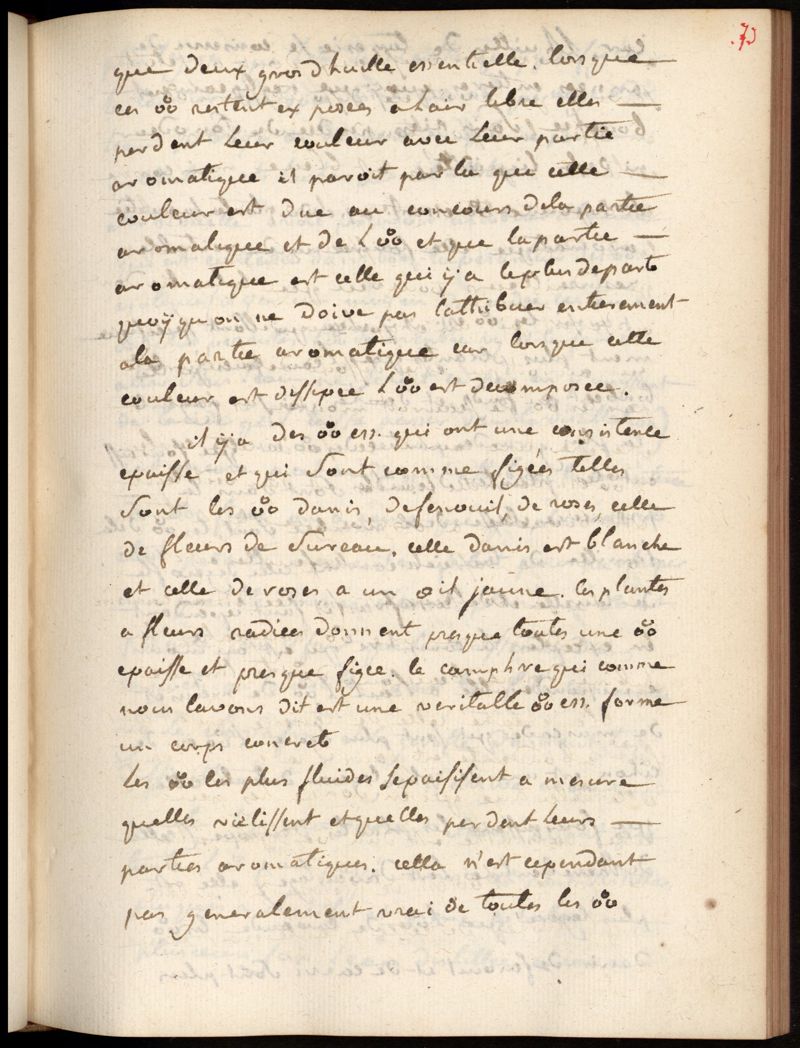 73
que deux gros dhuille essentielle. lorsque
ces ஃ restent exposees a lair libre elles —
perdent leur couleur avec leur partie
aromatique il paroit par la que cette —
couleur est due au concours dela partie
aromatique et de lஃ et que la partie —
aromatique est celle qui y a le plus de part
quoyqu on ne doive pas lattribuer entierement
ala partie aromatique car lorsque cette
couleur est dissipee lஃ est decomposee.
il y a des ஃ ess. qui ont une consistence
epaisse et qui sont comme figées telles
sont les ஃ danis, de fenouil, de roses, celle
de fleurs de sureau. celle danis est blanche
et celle de roses a un œil jaune. les plantes
a fleurs radiees donnent presque toutes une ஃ
epaisse et presque figee. le camphre qui comme
nous lavons dit est une veritable ஃ ess. forme
un corps concret
les ஃ les plus fluides sepaisisent a mesure
quelles vielissent et quelles perdent leurs —
parties aromatiques. cella n'est cependant
pas generalement vrai de toutes les ஃ